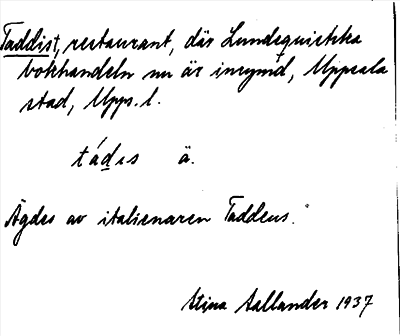 Taddist, restaurant, där Lundequistska
bokhandeln nu är inrymd, Uppsala
stad, Upps. l.
tádis ä.
Ägdes av italienaren Taddeus.
Stina Aallander 1937